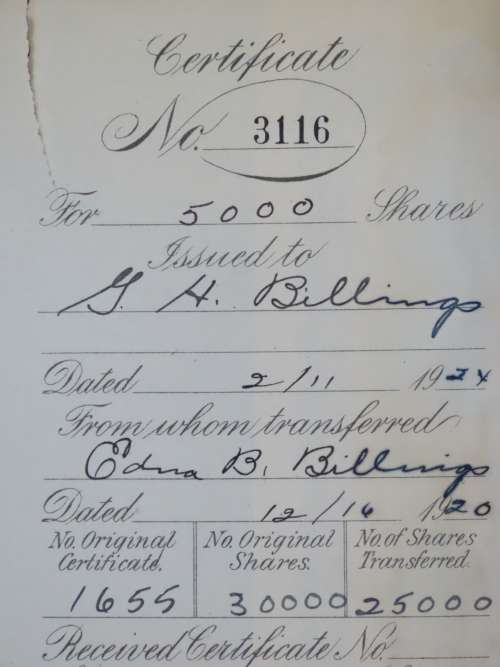 Certificate
No. 3116
For 5000 Shares
Issued to
G. H. Billings
Dated 2/11 1924
From whom transferred
Edna B. Billings
Dated 12/16 1920
No. Original Certificate. No. Original Shares. No. of Shares Transferred.
1655 30000 25000
Received Certificate No.